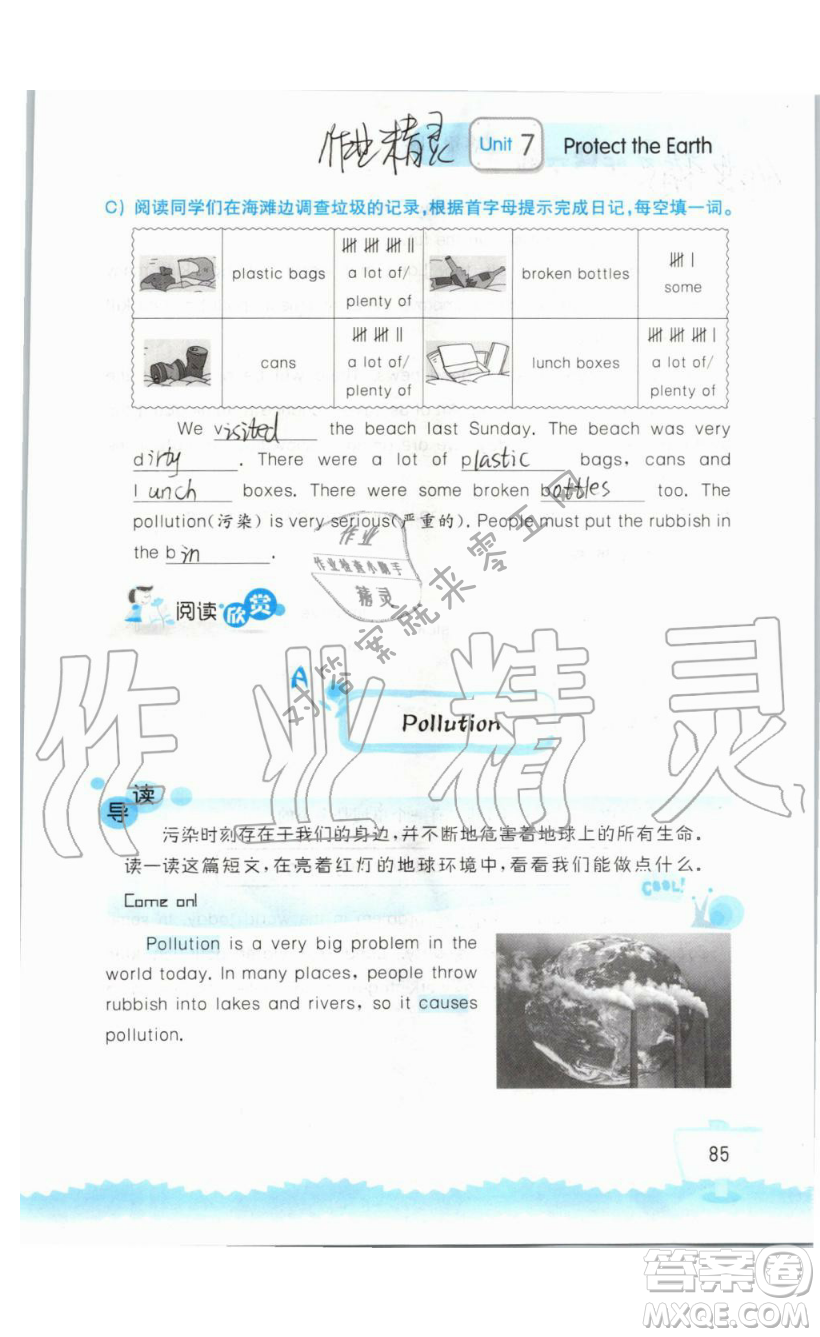 作业精灵
Unit 7 Protect the Earth
C) 阅读同学们在海滩边调查垃圾的记录,根据首字母提示完成日记,每空填一词。
plastic bags
a lot of/
plenty of
broken bottles
some
cans
a lot of/
plenty of
lunch boxes
a lot of/
plenty of
We visited the beach last Sunday. The beach was very
dirty. There were a lot of plastic bags, cans and
lunch boxes. There were some broken bottles too. The
pollution(污染) is very serious(严重的). People must put the rubbish in
the bin.
作业
作业检查小助手
精灵
对答案就来零五网
阅读欣赏
作业精灵
A
Pollution
导读
污染时刻存在于我们的身边,并不断地危害着地球上的所有生命。
读一读这篇短文,在亮着红灯的地球环境中,看看我们能做点什么。
Come on!
COOL!
Pollution is a very big problem in the
world today. In many places, people throw
rubbish into lakes and rivers, so it causes
pollution.
85
答案卷
MXQE.COM